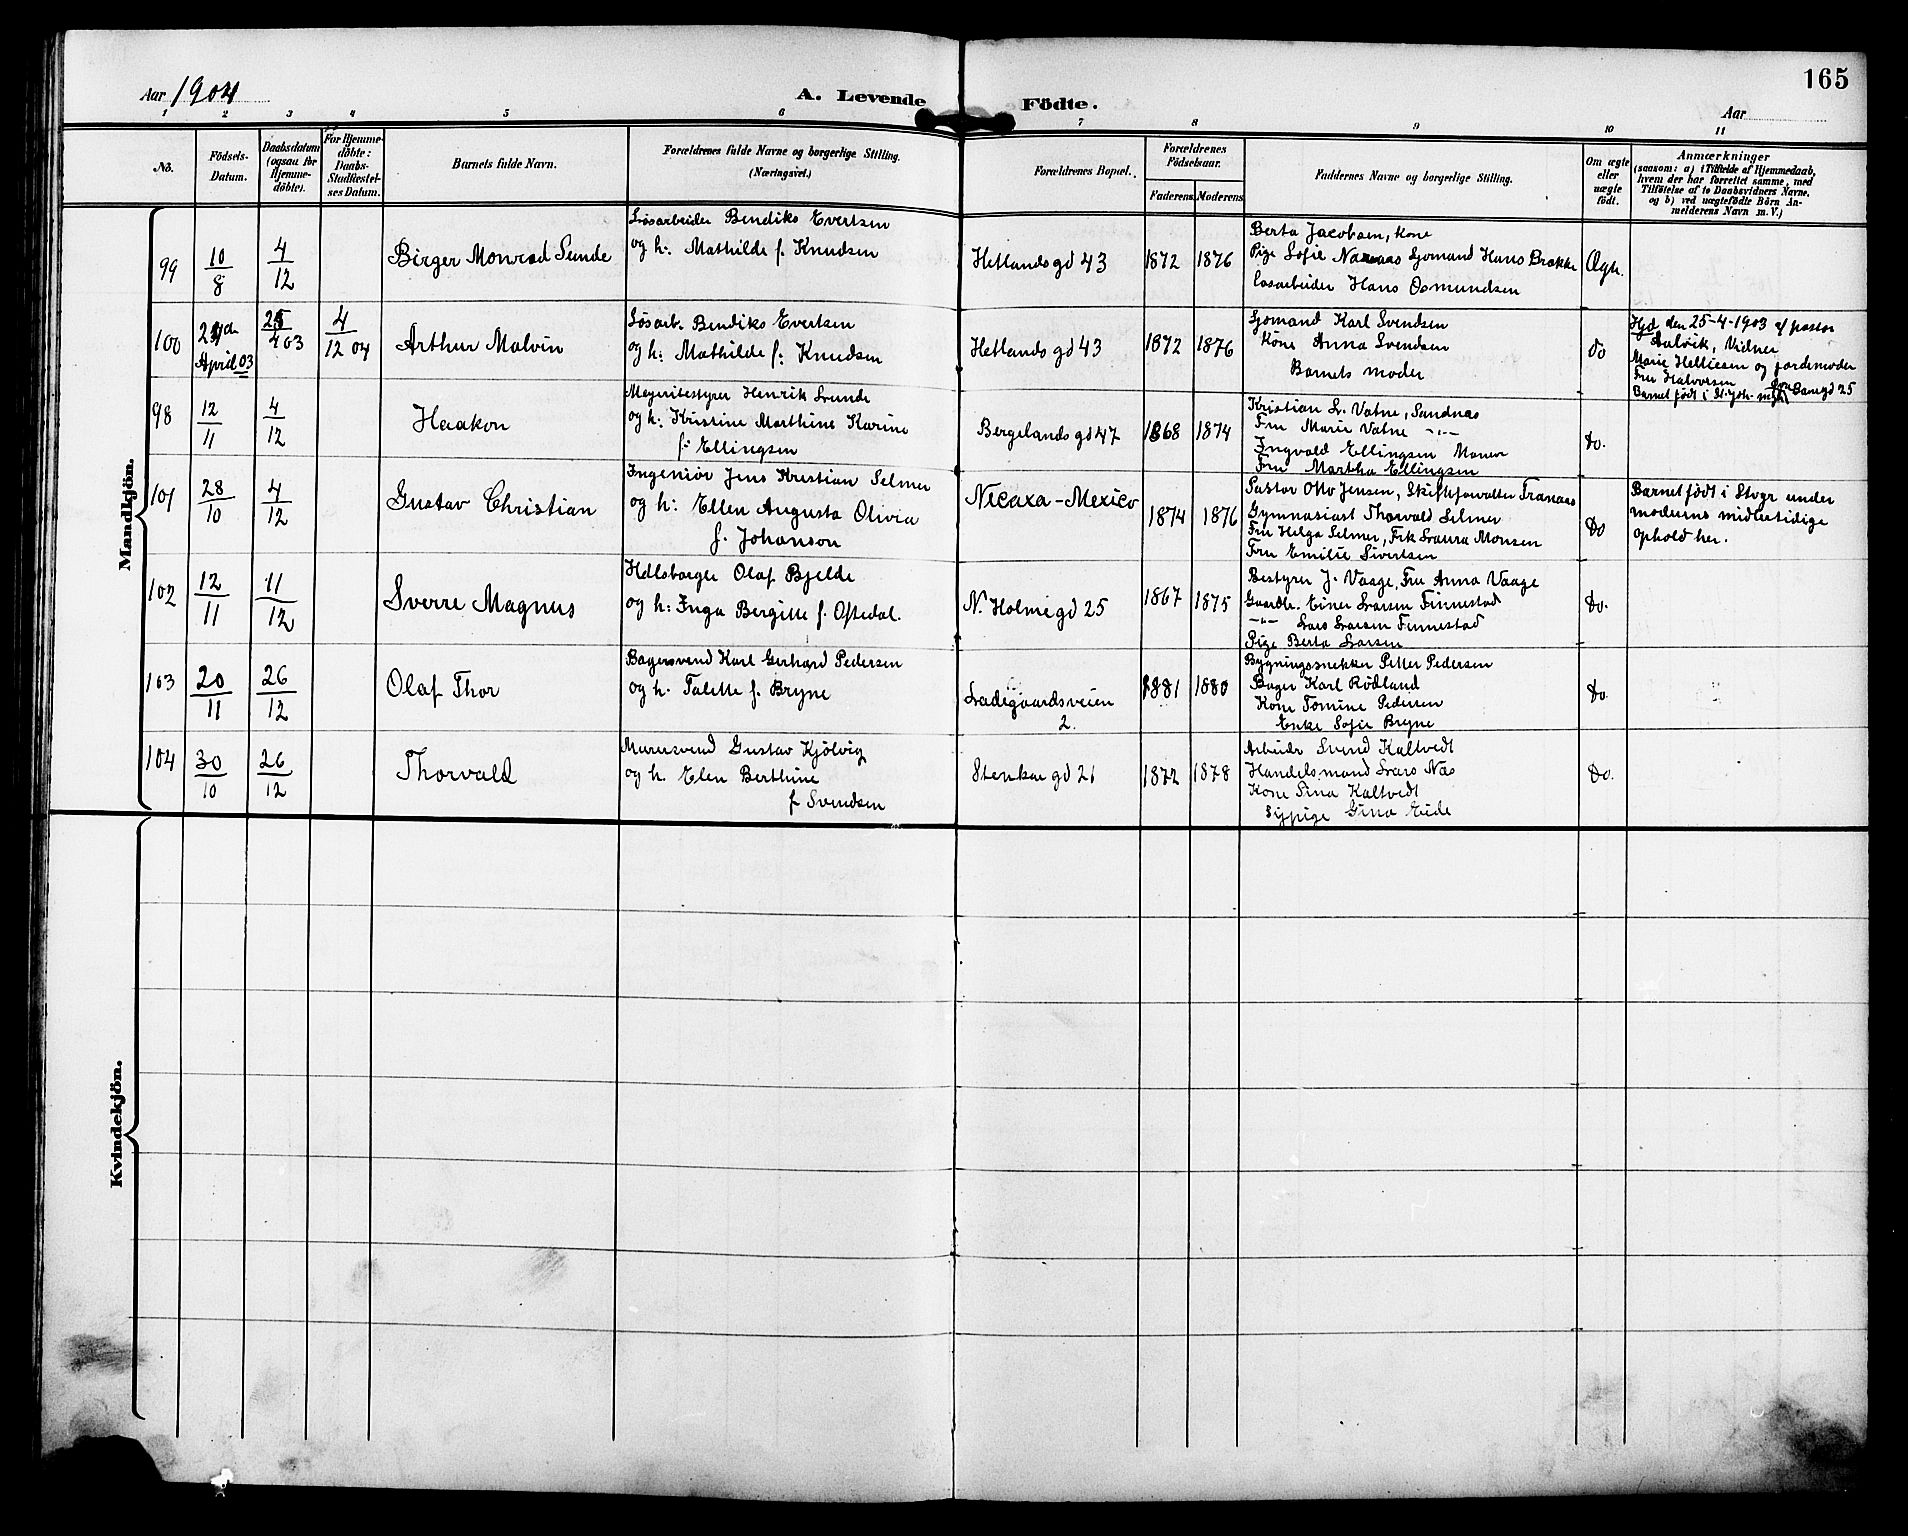 165
Aar 1904
A. Levende Födte.
Aar
1 2 3 4 5 6 7 8 9 10 11
No.
Födsels-
Datum.
Daabsdatum
(ogsaa for
Hjemme-
döbte).
For Hjemme-
döbte:
Daabs-
Stadfæstel-
ses Datum.
Barnets fulde Navn.
Forældrenes fulde Navne og borgerlige Stilling.
(Næringsvei.)
Forældrenes Bopæl.
Forældrenes
Födselsaar.
Faderens. Moderens.
Faddernes Navne og borgerlige Stilling.
Om ægte
eller
uægte
födt.
Anmærkninger
(saasom: a) i Tilfælde af Hjemmedaab,
hvem der har forrettet samme, med
Tilföielse af to Daabsvidners Navne,
og b) ved uægtefödte Börn An-
melderens Navn m. V.)
Mandkjön.
99
10/8
4/12
Birger Monrad Sunde
Løsarbeider Bendiks Evertsen
og h: Mathilde f. Knudsen
Hetlands gd 43
1872 1876
Berta Jacobsen, kone
Pige Sofie Sjømand Hans Brekke
Løsarbeider Hans Osmundsen
Ægte.
100
April 03
25/4 03
4/12 04
Arthur Malvin
Løsarb. Bendiks Evertsen
og h: Mathilde f: Knudsen
Hetlands gd 43
1872 1876
Sjømand Karl Svendsen
Kone Anna Svendsen
Barnets moder
do
Hjd den 25-4-1903 af pastor
Aalvik, Vidner
Marie Helliesen og jordemoder
Fru Halvorsen
Barnet født i St. Joh. mgh
98
12/11
4/12
Haakon
Meieribestyrer Henrik Svende
og h: Kristine Marthine Karine
f: Ellingsen
Bergelands gd 47
1868 1874
Kristian L. Vatne, Sandnæs
Fru Marie Vatne -"-
Ingvald Ellingsen
Fru Martha Ellingsen
do.
101
28/10
4/12
Gustav Christian
Ingeniør Jens Kristian Selmer
og h: Ellen Augusta Olivia
f. Johanson
Necaxa - Mexico
1874 1876
Pastor Otto Jensen, Skifteforvalter Tranaas
Gymnasiast Thorvald Selmer
Fru Helga Selmer, Frk Laura Monsen
Fru Emilie Sivertsen
do
Barnet født i Stvgr under
moderens midlertidige
ophold her.
102
12/11
11/12
Sverre Magnus
Olaf Bjelde
og h: Inga Bergitte f. Oftedal.
N. Holmegd 25
1867 1875
Bestyrer J. Vaage, Fru Anna Vaage
Gaardbr. Einer Larsen Finnestad
-"- Lars Larsen Finnestad
Pige Berta Larsen
do.
103
20/11
26/12
Olaf Thor
Bagersvend Karl Gerhard Pedersen
og h. Talette f. Bryne
Ladegaardsveien
2.
1881 1880
Bygningssnekker Petter Pedersen
Bager Karl Rödland
Kone Tomine Pedersen
Enke Sofie Bryne
do.
104
30/10
26/12
Thorvald
Murersvend Gustav Kjölvig
og h. Elen Berthine
f Svendsen
Stenkar gd 21
1872 1878
Arbeider Svend Kaltvedt
Handelsmand Lars Næs
Kone Sina Kaltvedt
Sypige Gina Eide
do.
Kvindekjön.